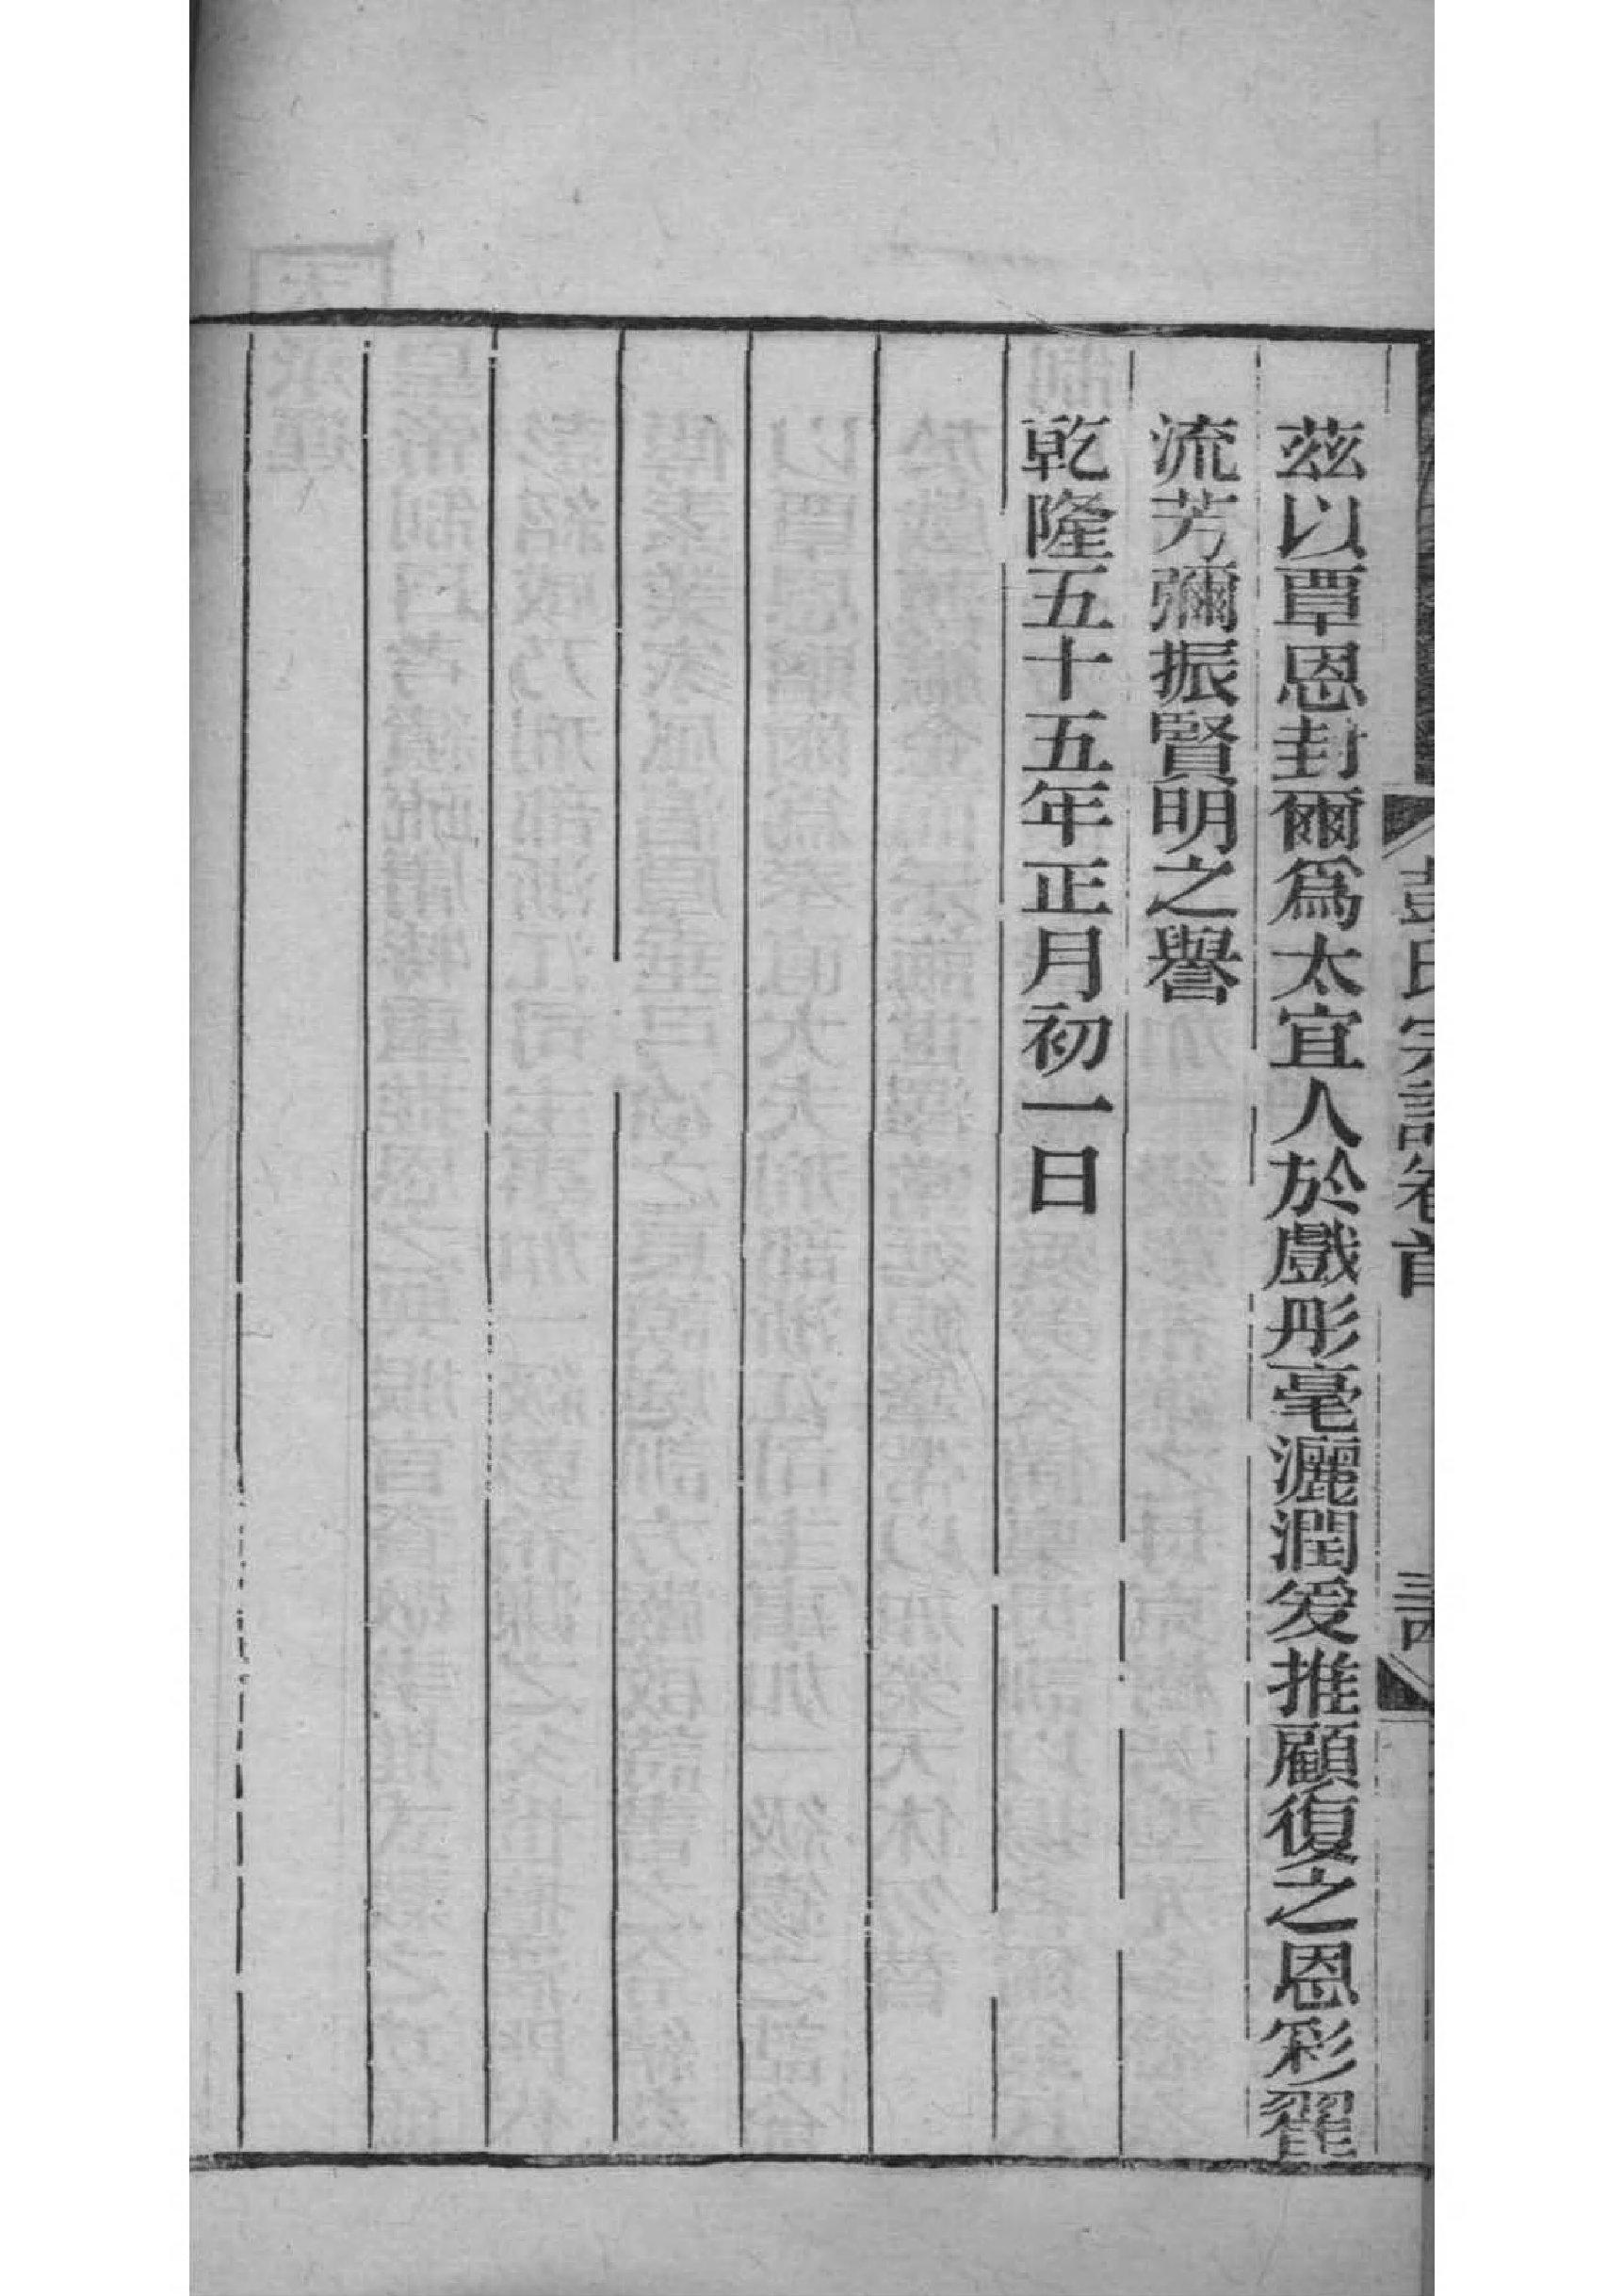 彭氏宗譜卷首
茲以覃恩封爾爲太宜人於戲彤毫灑潤爰推顧復之恩彩翟
流芳彌振賢明之譽
乾隆五十五年正月初一日